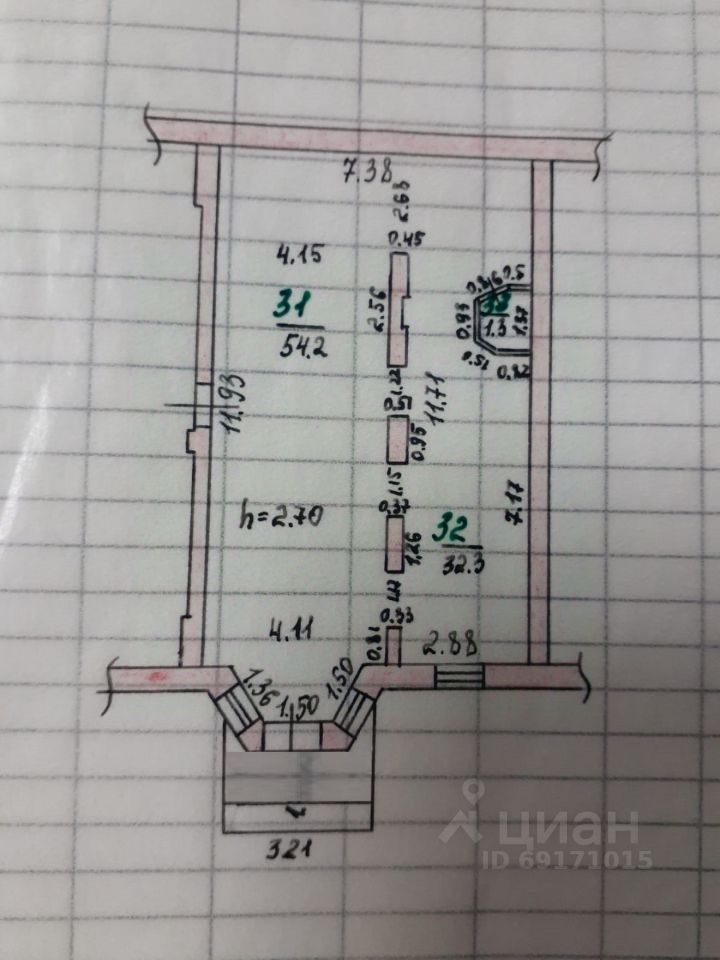 7.38
2.68
0.45
4.15
31
54.2
2.56
0.5
33
1.3
0.93
1.37
0.51
0.82
1.22
11.71
11.93
0.95
1.15
0.37
7.17
h=2.70
32
32.3
1.26
0.33
0.81
4.11
2.88
1.36
1.50
1.50
321
циан
ID 69171015